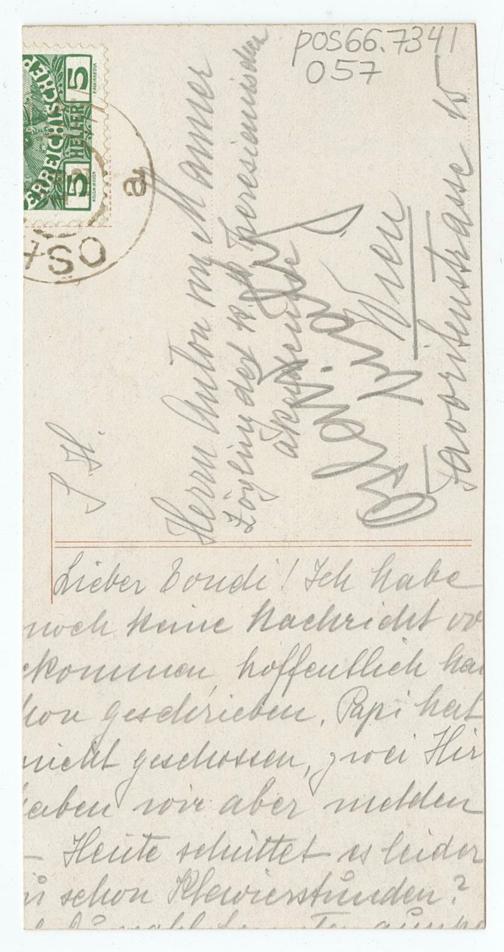 pos66.7341
057
5 HELLER 5
ERREICHISCHE P
OSt
a
S. H.
Herrn Anton von Manner
Zögling der k. k. Theresienischen
akademie
Wien
Favoritenstrasse 15
Lieber Tondi! Ich habe
noch keine Nachricht vo
ekommen, hoffentlich ha
hon geschrieben. Papi hat
nicht geschossen, zwei Hir
haben wir aber melden
– Heute schüttet es leider
schon Klavierstunden?